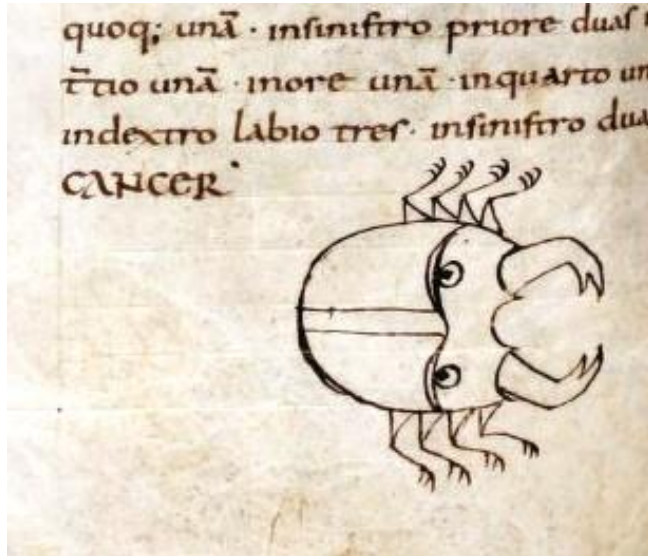 quoq; unā · insinistro priore duas
t̄tio unā · inore unā · inquarto un
indextro labio tres · insinistro dua
CANCER